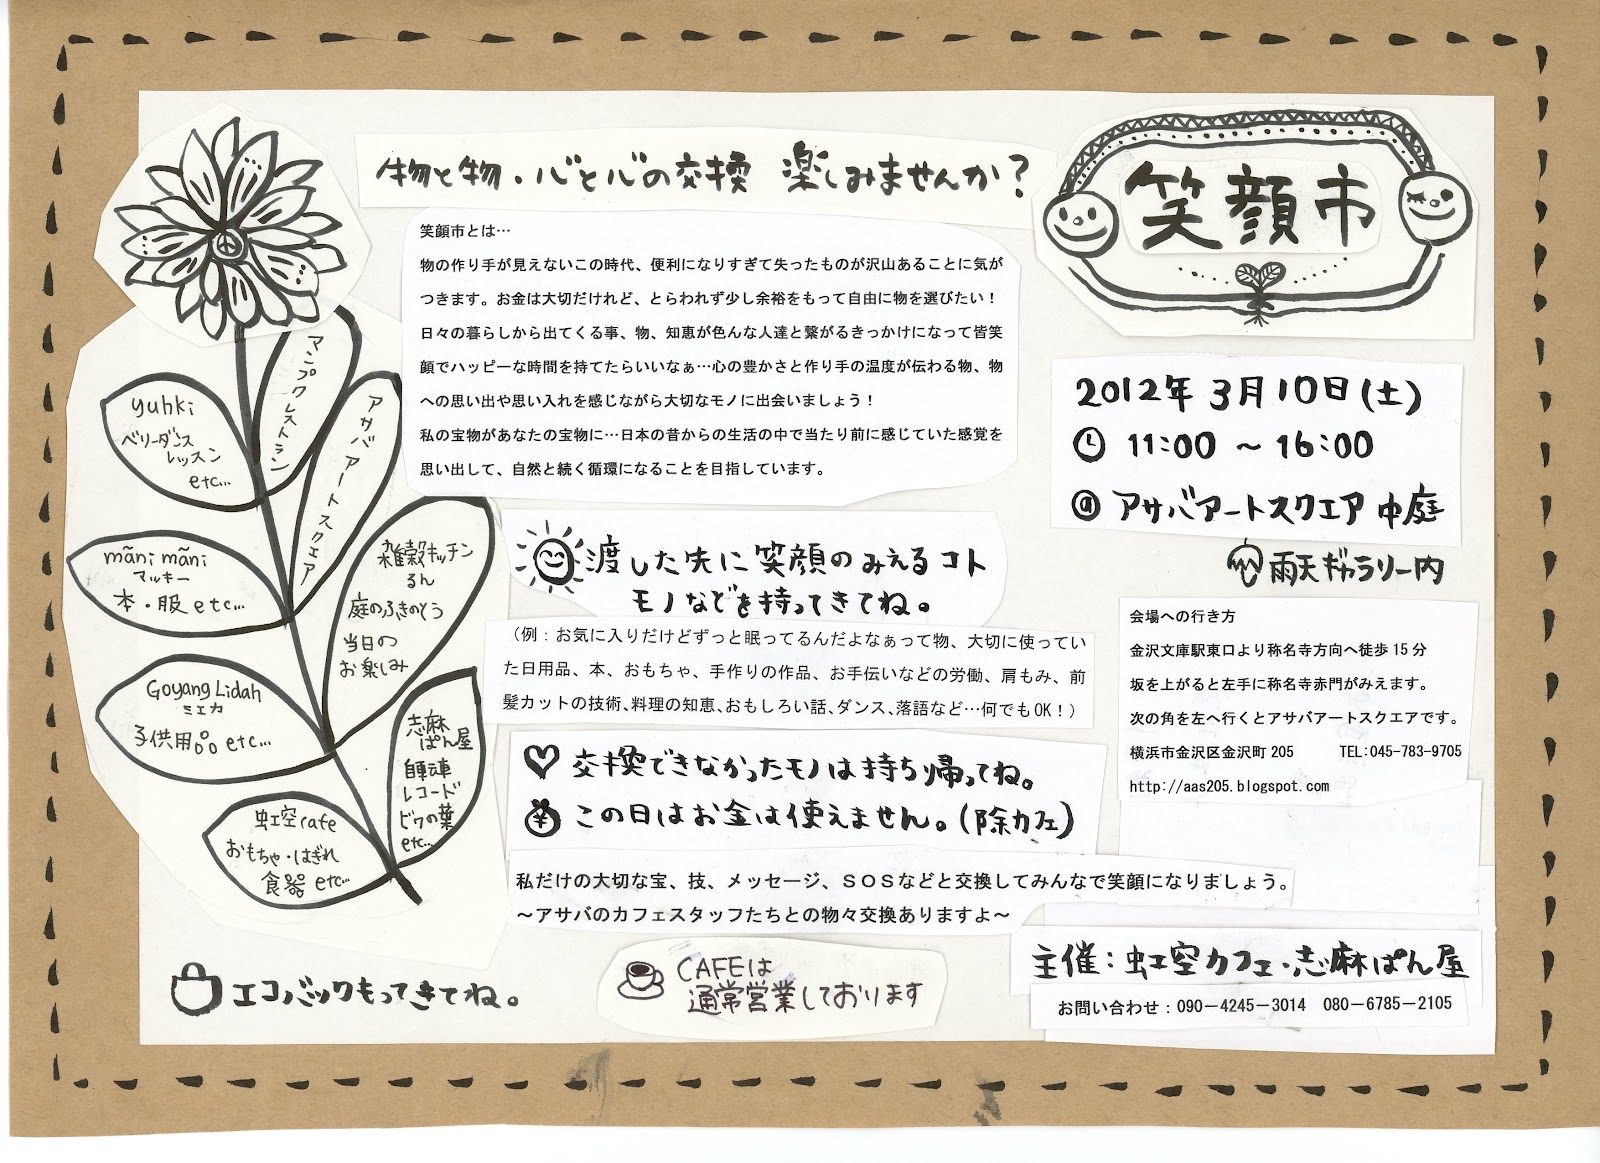 物と物・心と心の交換 楽しみませんか？
笑顔市
笑顔市とは…
物の作り手が見えないこの時代、便利になりすぎて失ったものが沢山あることに気が
つきます。お金は大切だけれど、とらわれず少し余裕をもって自由に物を選びたい！
日々の暮らしから出てくる事、物、知恵が色んな人達と繋がるきっかけになって皆笑
顔でハッピーな時間を持てたらいいなぁ…心の豊かさと作り手の温度が伝わる物、物
への思い出や思い入れを感じながら大切なモノに出会いましょう！
私の宝物があなたの宝物に…日本の昔からの生活の中で当たり前に感じていた感覚を
思い出して、自然と続く循環になることを目指しています。
2012年 3月10日(土)
11:00 ～ 16:00
@ アサバアートスクエア 中庭
雨天ギャラリー内
会場への行き方
金沢文庫駅東口より称名寺方向へ徒歩 15 分
坂を上がると左手に称名寺赤門がみえます。
次の角を左へ行くとアサバアートスクエアです。
横浜市金沢区金沢町 205 TEL:045-783-9705
http://aas205.blogspot.com
渡した先に笑顔のみえるコト
モノなどを持ってきてね。
（例：お気に入りだけどずっと眠ってるんだよなぁって物、大切に使ってい
た日用品、本、おもちゃ、手作りの作品、お手伝いなどの労働、肩もみ、前
髪カットの技術、料理の知恵、おもしろい話、ダンス、落語など…何でもOK！）
交換できなかったモノは持ち帰ってね。
¥ この日はお金は使えません。(除カフェ)
私だけの大切な宝、技、メッセージ、ＳＯＳなどと交換してみんなで笑顔になりましょう。
～アサバのカフェスタッフたちとの物々交換ありますよ～
マンプクレストラン
アサバアートスクエア
yuhki
ベリーダンス
レッスン
etc...
mãni mãni
マッキー
本・服 etc...
雑穀キッチン
るん
庭のふきのとう
当日の
お楽しみ
Goyang Lidah
ミエカ
子供用品 etc...
志麻
ぱん屋
自転車
レコード
ビワの葉
etc...
虹空cafe
おもちゃ・はぎれ
食器 etc...
エコバックもってきてね。
CAFEは
通常営業しております
主催：虹空カフェ・志麻ぱん屋
お問い合わせ：090－4245－3014 080－6785－2105